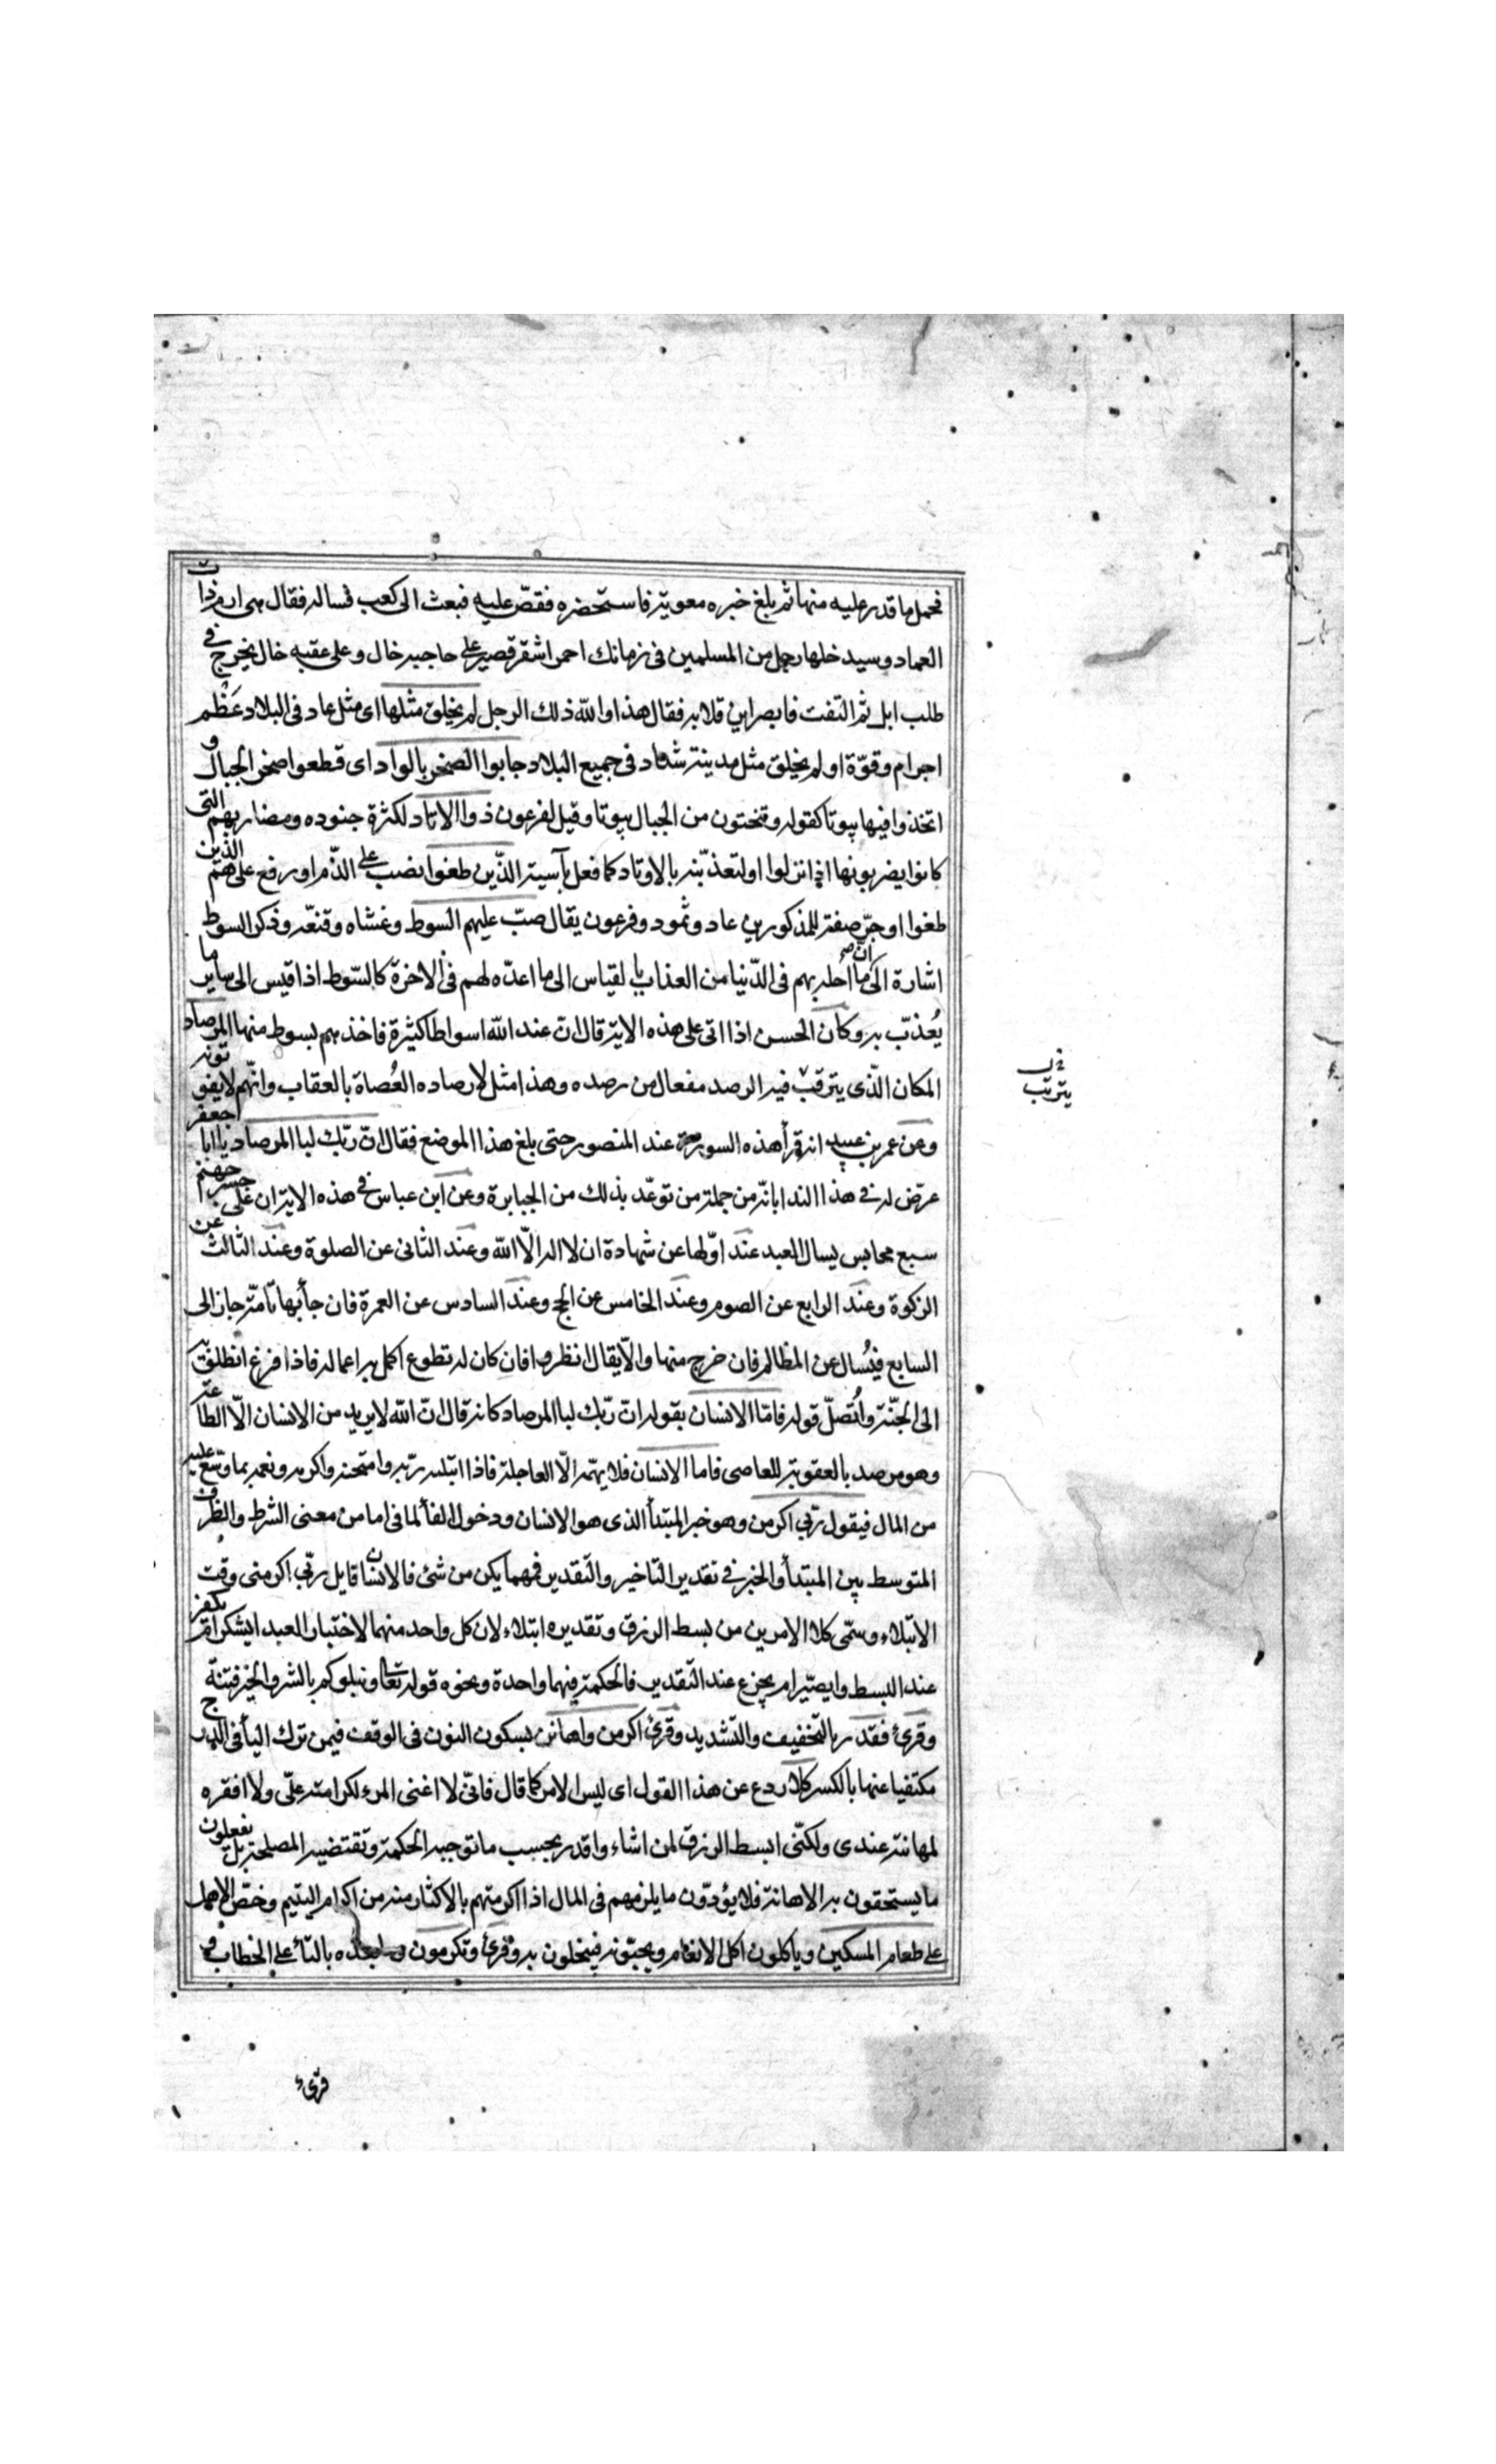 فحمل ما قدر عليه منها ثم بلغ خبره معوية فاستحضره فقصّ عليه فبعث الى كعب فساله فقال هى ارم ذات
العماد وسيدخلها رجل من المسلمين فى زمانك احمر اشقر قصير على حاجبه خال وعلى عقبه خال يخرج فى
طلب ابل ثم التفت فابصر ابن قلابه فقال هذا والله ذلك الرجل لم يخلق مثلها اى مثل عاد فى البلاد عَظْم
اجرام وقوّة او لم يخلق مثل مدينة شداد فى جميع البلاد جابوا الصخر بالواد اى قطعوا صخر الجبال و
اتخذوا فيها بيوتا كقوله وتنحتون من الجبال بيوتا وقيل لفرعون ذو الاوتاد لكثرة جنوده ومضاربهم التى
كانوا يضربونها اذا نزلوا او لتعذيبه بالاوتاد كما فعل بآسية الذّين طغوا نصب على الذّم او رفع على هم الذين
طغوا او جرّ صفة للمذكورين عاد وثمود وفرعون يقال صبّ عليهم السوط وغشاه وقنعّه وذكر السوط
اشارة الى انّ ما احله بهم فى الدّنيا من العذاب بالقياس الى ما اعدّه لهم فى الاخرة كالسّوط اذا قيس الى ساير ما
يُعذبّ به وكان الحسن اذا اتى على هذه الاية قال انّ عند الله اسواطا كثيرة فاخذهم بسوط منها المرصاد
المكان الّذى يترقبّ فيه الرصد مفعال من رصده وهذا مثل لارصاده العُصاة بالعقاب وانّهم لا يفوتونه
وعن عمر بن عبيد انه قرأ هذه السورة عند المنصور حتى بلغ هذا الموضع فقال انّ ربّك لبا المرصاد يا ابا جعفر
عرّض له فى هذا الندا بانّه من جملة من توعّد بذلك من الجبابرة وعن ابن عباس فى هذه الاية ان على جسر جهنم
سبع محابس يسال العبد عند اوّلها عن شهادة ان لا اله الّا الله وعند الثانى عن الصلوة وعند الثالث عن
الزكوة وعند الرابع عن الصوم وعند الخامس عن الحج وعند السادس عن العمرة فان جأ بها تامّة جاز الى
السابع فيُسال عن المظالم فان خرج منها والّا يقال انظروا فان كان له تطوع اكمل به اعماله فاذا فرغ انطلق به
الى الجنّة واُتصلّ قوله فامّا الانسان بقوله انّ ربّك لبا المرصاد كانه قال انّ الله لا يريد من الانسان الّا الطاعة
وهو مرصد بالعقوبة للعاصى فاما الانسان فلا يهمّه الّا العاجلة فاذا ابتليه ربّه وامتحنه واكرمه ونعمه بما وسّع عليه
من المال فيقول ربّى اكرمن وهو خبر المبتدأ الذى هو الانسان ودخول الفأ لما فى اما من معنى الشرط والظرف
المتوسط بين المبتدأ والخبر فى تقدير التاخير والتقدير فمهما يكن من شئ فالانسان قايل ربّى اكرمنى وقت
الابتلاء وسمّى كلا الامرين من بسط الرزق وتقديره ابتلاء لان كل واحد منهما لاختبار العبد ايشكر ام يكفر
عند البسط وايصبر ام يجزع عند التقدير فالحكمة فيهما واحدة ونحوه قوله تعا ونبلوكم بالشر والخير فتنة
وقرئ فقدّر بالتخفيف والتشديد وقرئ اكرمن واهانن بسكون النون فى الوقف فيمن ترك اليأ فى الدرج
مكتفيا عنها بالكسر كلا ردع عن هذا القول اى ليس الامر كما قال فانّى لا اغنى المرء لكرامته علّى ولا افقره
لمهانته عندى ولكنّى ابسط الرزق لمن اشاء واقدر بحسب ما توجبه الحكمة وتقتضيه المصلحة بل يفعلون
ما يستحقون به الاهانة فلا يؤدّون ما يلزمهم فى المال اذا اكرمتهم بالاكثار منه من اكرام اليتيم وخصّ الاهل
على طعام المسكين وياكلون اكل الانعام ويحبّونه فيبخلون به وقرئ وتكرمون وما بعده بالتأ على الخطاب و
فى ب
يترتب
قرئ